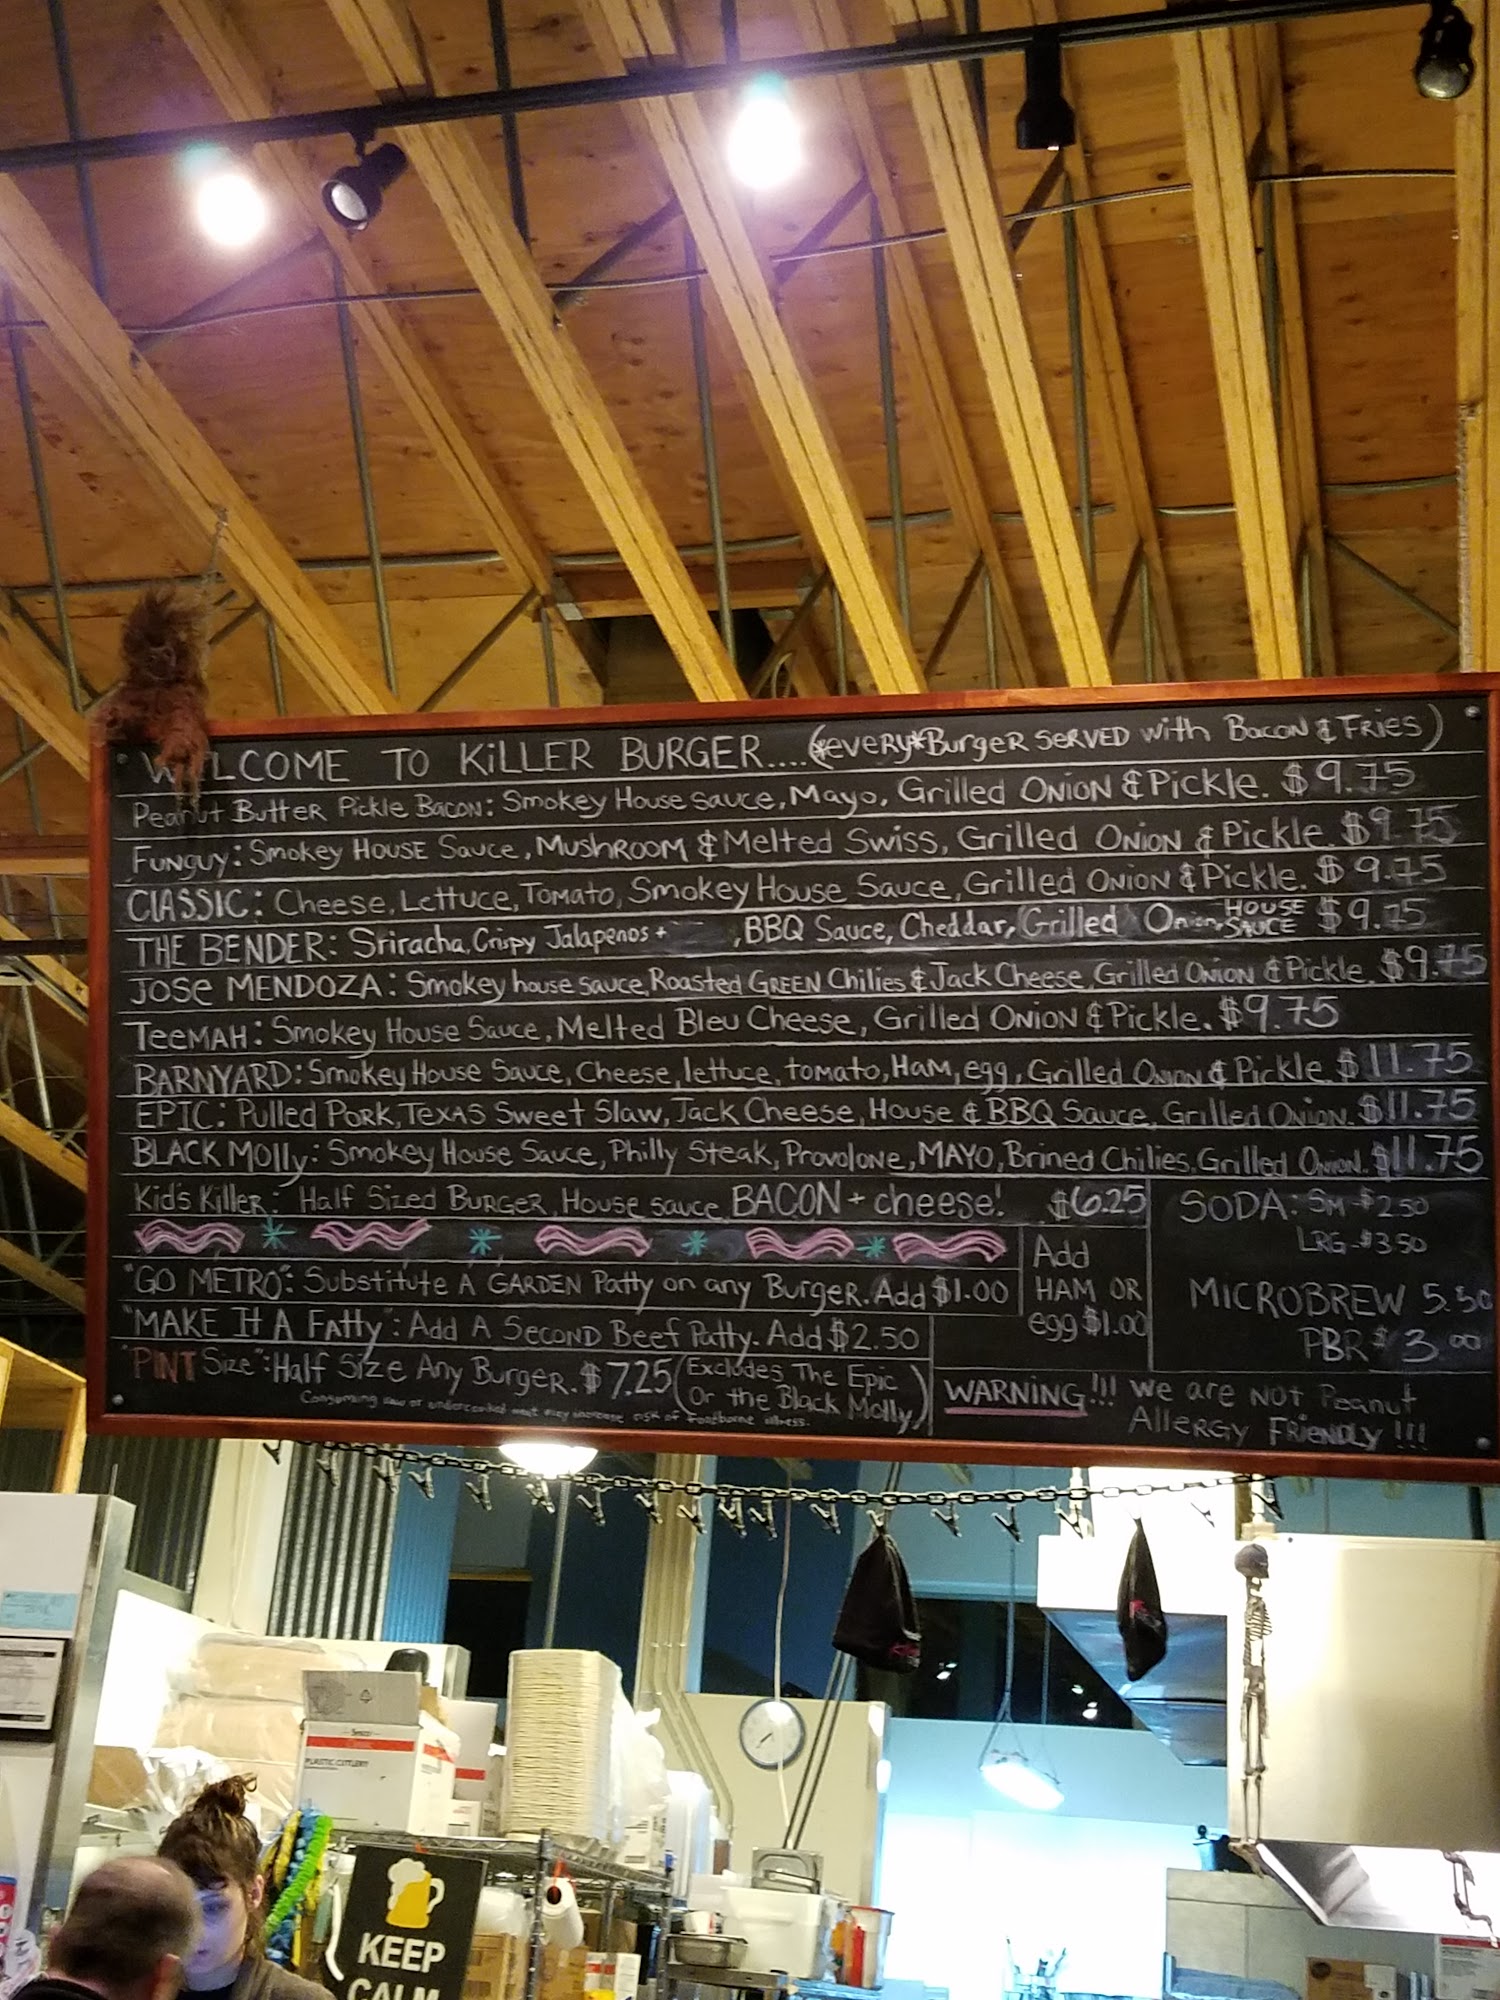 WELCOME TO KILLER BURGER.... (*every* BURGER SERVED with BACON & FRIES)
Peanut Butter Pickle Bacon: Smokey House sauce, Mayo, Grilled ONION & Pickle. $9.75
Funguy: Smokey House Sauce, MushROOM & Melted Swiss, Grilled ONION & Pickle. $9.75
CLASSIC: Cheese, Lettuce, Tomato, Smokey House Sauce, Grilled ONION & Pickle. $9.75
THE BENDER: Sriracha, Crispy Jalapenos + , BBQ Sauce, Cheddar, Grilled Onion, HOUSE SAUCE $9.75
JOSE MENDOZA: Smokey house sauce, Roasted GREEN Chilies & Jack Cheese, Grilled ONION & Pickle. $9.75
TeeMAH: Smokey House Sauce, Melted Bleu Cheese, Grilled ONION & Pickle. $9.75
BARNYARD: Smokey House Sauce, Cheese, lettuce, tomato, HAM, egg, Grilled ONION & Pickle. $11.75
EPIC: Pulled Pork, Texas Sweet Slaw, Jack Cheese, House & BBQ Sauce, Grilled Onion. $11.75
BLACK Molly: Smokey House Sauce, Philly Steak, Provolone, MAYO, Brined Chilies, Grilled Onion. $11.75
Kid's Killer: Half Sized BURGER, House sauce, BACON + cheese! $6.25
"GO METRO": Substitute A GARDEN Patty on any BurgeR. Add $1.00
"MAKE It A Fatty": Add A SECOND Beef Patty. Add $2.50
"PINT Size": Half Size Any Burger. $7.25 (Excludes The Epic
Or the Black Molly)
Consuming raw or undercooked meat may increase risk of foodborne illness.
Add
HAM OR
egg $1.00
SODA: SM - $2.50
LRG - $3.50
MICROBREW 5.50
PBR $3.00
WARNING!!! We are NOT Peanut
ALLERGY FRIENDLY!!!
Sysco
PLASTIC CUTLERY
KEEP
CALM